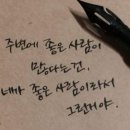 주변에 좋은 사람이
많다는건,
네가 좋은 사람이라서
그런거야.